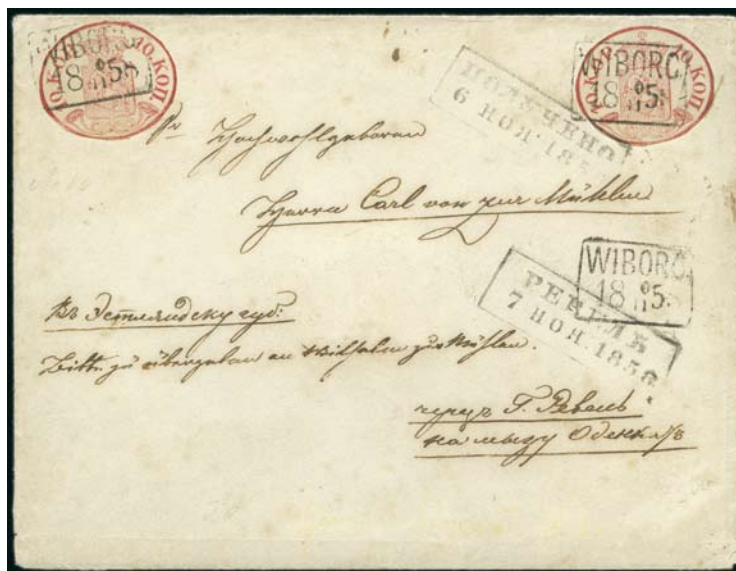 10.КОП. 10.КОП.
WIBORG.
18 5/11 58
10.КОП. 10.КОП.
WIBORG.
18 5/11 58
ПОЛУЧЕНО
6 НОЯ. 1858
Sr Hochwohlgeboren
Herrn Carl von zur Mühlen
WIBORG.
18 5/11 58
РЕВЕЛЬ
7 НОЯ. 1858
въ Эстляндску губ:
Bitte zu übergeben an Wilhelm zur Mühlen.
черезъ Г. Ревель
на мызу